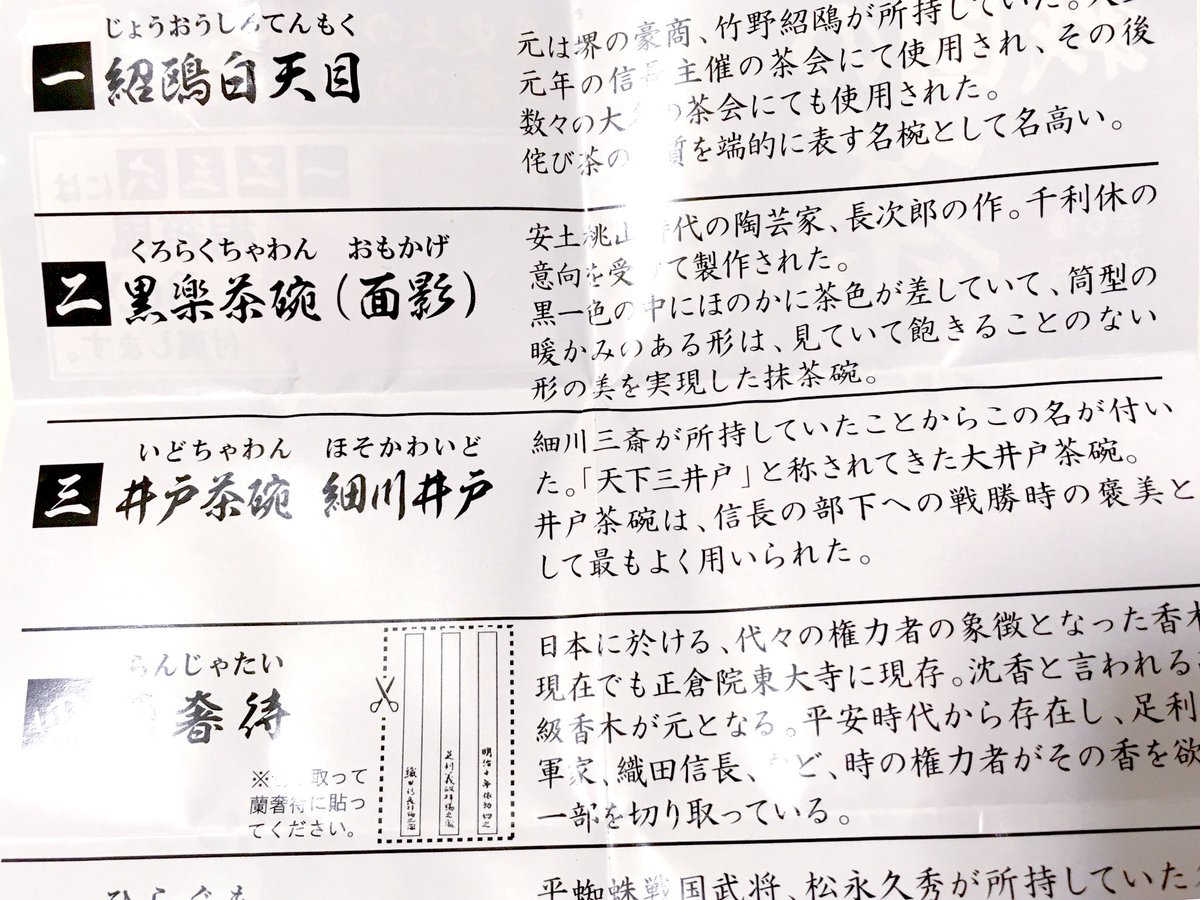 じょうおうしろてんもく
一 紹鴎白天目
元は堺の豪商、竹野紹鴎が所持していた。
元年の信長主催の茶会にて使用され、その後
数々の大 の茶会にても使用された。
侘び茶の 質を端的に表す名椀として名高い。
くろらくちゃわん おもかげ
二 黒楽茶碗(面影)
安土桃山時代の陶芸家、長次郎の作。千利休の
意向を受けて製作された。
黒一色の中にほのかに茶色が差していて、筒型の
暖かみのある形は、見ていて飽きることのない
形の美を実現した抹茶碗。
いどちゃわん ほそかわいど
三 井戸茶碗 細川井戸
細川三斎が所持していたことからこの名が付い
た。「天下三井戸」と称されてきた大井戸茶碗。
井戸茶碗は、信長の部下への戦勝時の褒美と
して最もよく用いられた。
らんじゃたい
奢待
※ 取って
蘭奢待に貼っ
てください。
日本に於ける、代々の権力者の象徴となった香木
現在でも正倉院東大寺に現存。沈香と言われる
級香木が元となる。平安時代から存在し、足利
軍家、織田信長、など、時の権力者がその香を欲
一部を切り取っている。
ひらぐも
平蜘蛛戦国武将、松永久秀が所持していた